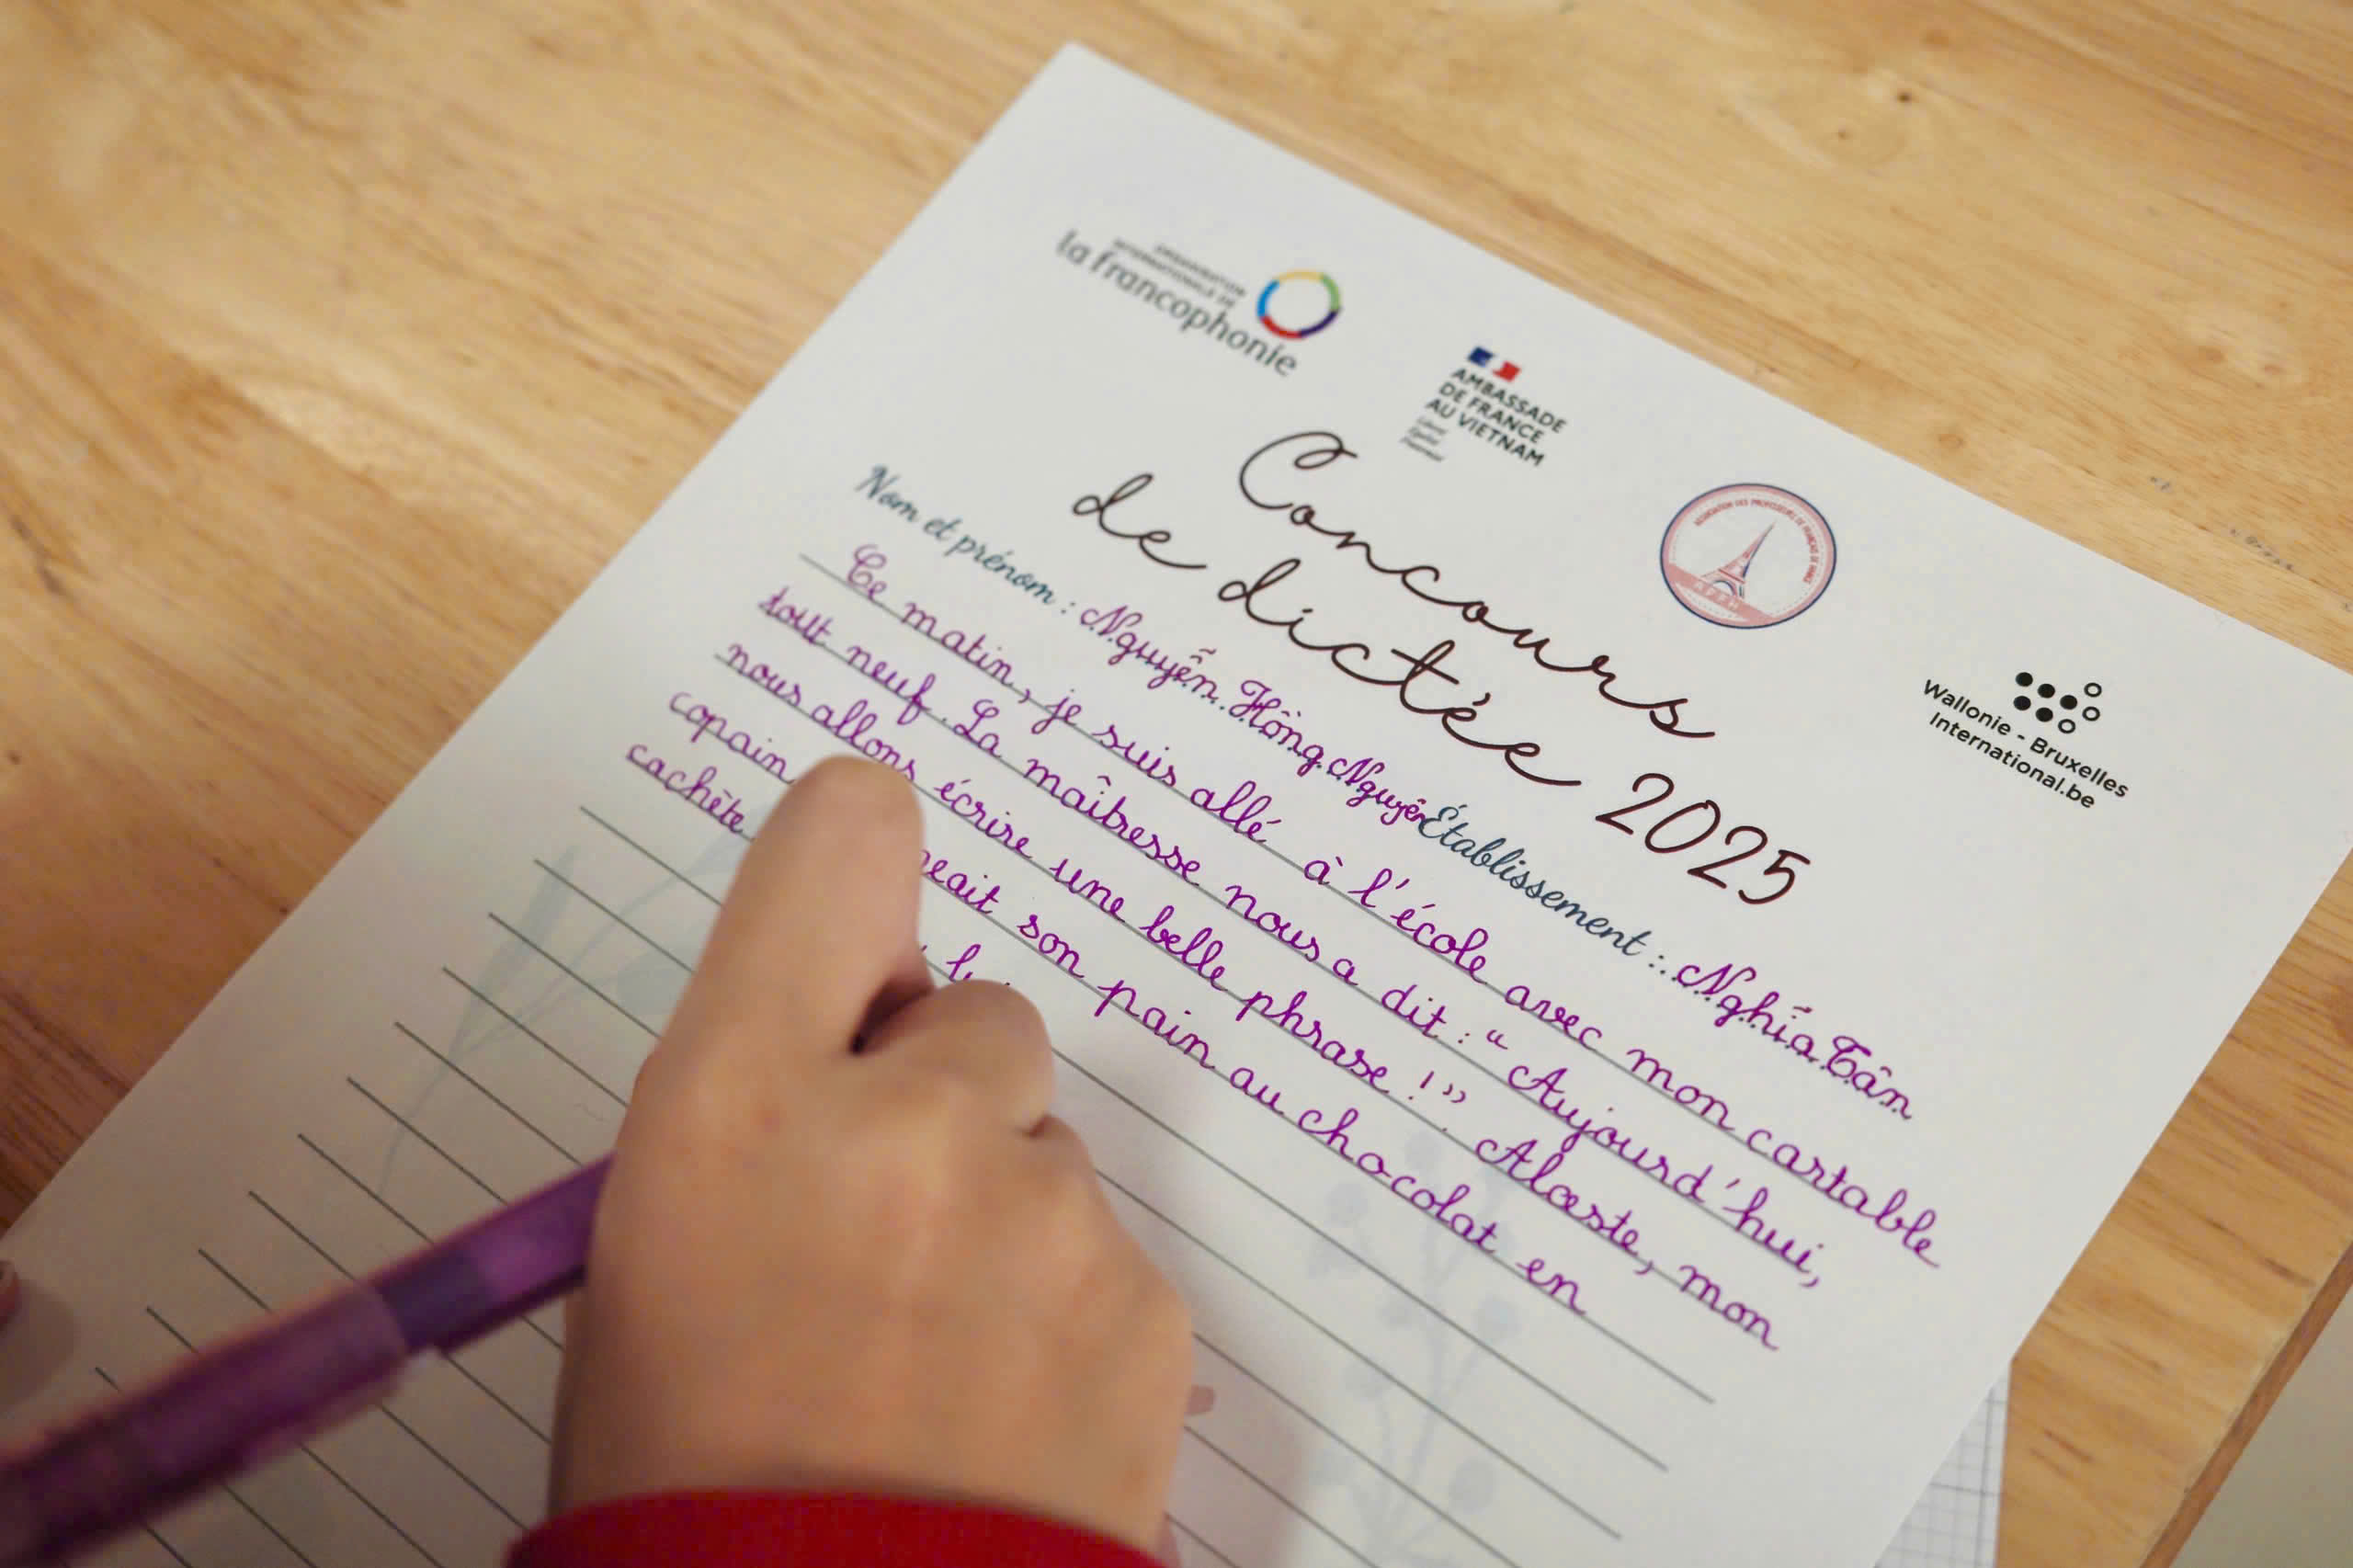 ORGANISATION
INTERNATIONALE DE
la francophonie
AMBASSADE
DE FRANCE
AU VIETNAM
Liberté
Égalité
Fraternité
ASSOCIATION DES PROFESSEURS DE FRANÇAIS DE HANOI
Wallonie - Bruxelles
International.be
Concours
de dictée 2025
Nom et prénom : Nguyễn Hồng Nguyên Établissement : Nghĩa Tân
Ce matin, je suis allé à l'école avec mon cartable
tout neuf. La maîtresse nous a dit : "Aujourd'hui,
nous allons écrire une belle phrase !". Alceste, mon
copain son pain au chocolat en
cachète